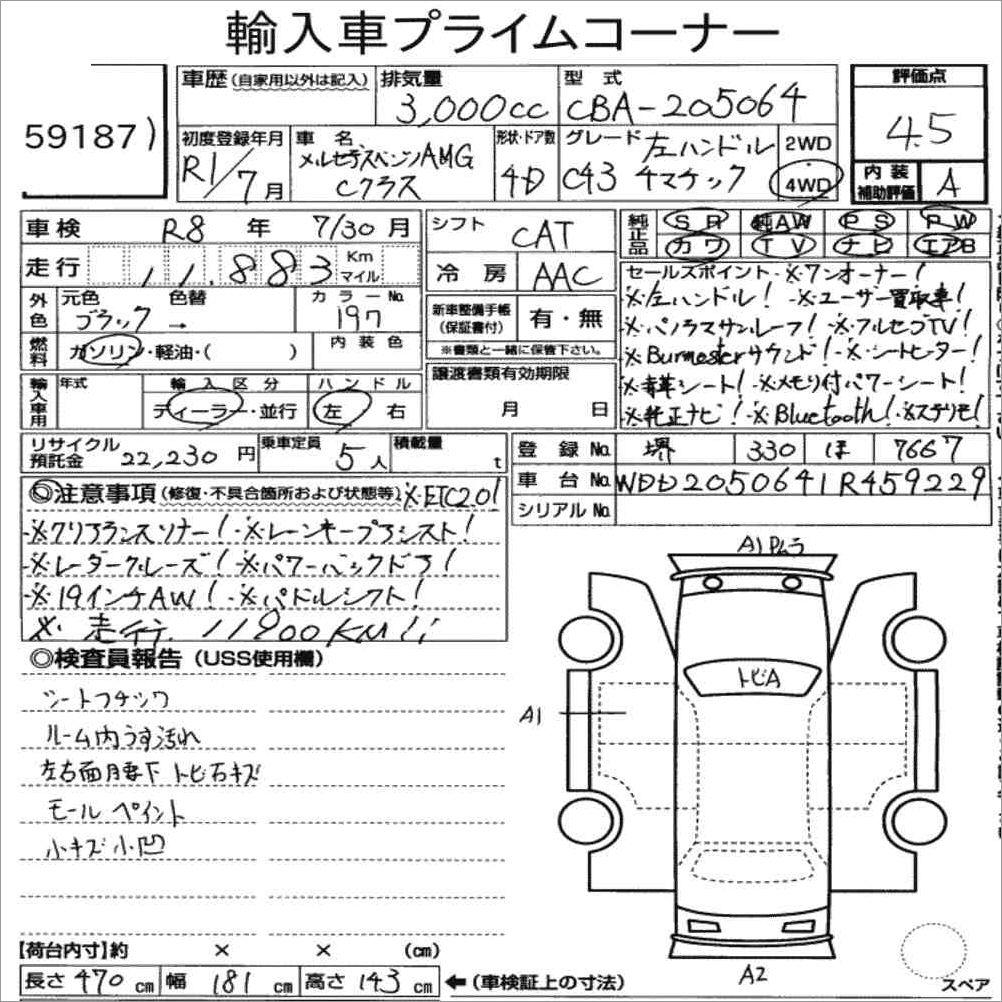 輸入車プライムコーナー
59187)
車歴(自家用以外は記入)
排気量
3,000cc
型式
CBA-205064
評価点
4.5
初度登録年月
R1/7月
車名
メルセデスベンツAMG
Cクラス
形状・ドア数
4D
グレード 左ハンドル
C43 4マチック
2WD
4WD
内装
補助評価
A
車検 R8年 7/30月
シフト CAT
純正品
SR 純AW PS PW
カワ TV ナビ エアB
走行 11,883 Km
マイル
冷房 AAC
セールスポイント ※ワンオーナー!
※左ハンドル! ※ユーザー買取車!
※パノラマサンルーフ! ※フルセグTV!
※Burmesterサウンド! ※シートヒーター!
※革シート! ※メモリ付パワーシート!
※純正ナビ! ※Bluetooth! ※ステリモ!
外色
元色 色替 カラーNo.
ブラック → 197
新車整備手帳
(保証書付)
有・無
※書類と一緒に保管下さい。
燃料
ガソリン・軽油・( )
内装色
譲渡書類有効期限
月 日
輸入車用
年式
輸入区分
ディーラー・並行
ハンドル
左 右
リサイクル
預託金
22,230円
乗車定員 5人
積載量
t
登録No. 堺 330 ほ 7667
車台No. WDD2050641R459229
シリアルNo.
◎注意事項(修復・不具合箇所および状態等) ※ETC2.0!
※クリアランスソナー! ※レーンキープアシスト!
※レーダークルーズ! ※パワーバックドア!
※19インチAW! ※パドルシフト!
※走行 11900KM!!
◎検査員報告(USS使用欄)
シートフチシワ
ルーム内うす汚れ
左右面月妻下 トビ石キズ
モール ペイント
小キズ小凹
A1 Pムラ
トビA
A1
A2
スペア
【荷台内寸】約 × × (cm)
長さ 470cm 幅 181cm 高さ 143cm ←(車検証上の寸法)